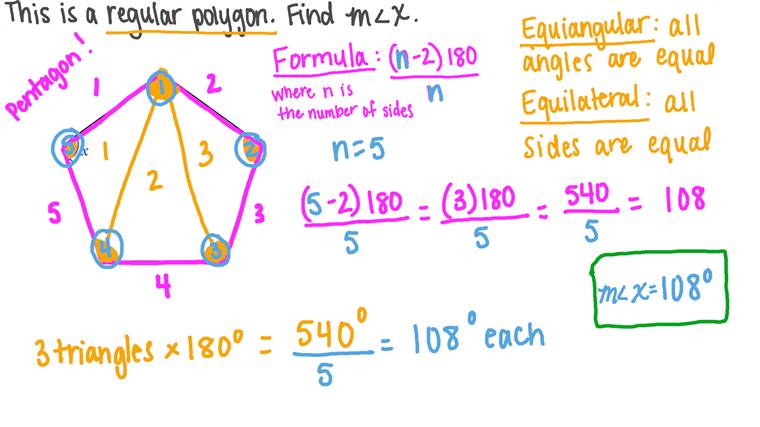 This is a regular polygon. Find m∠x.
Pentagon!
Formula: (n-2)180
n
where n is
the number of sides
n=5
Equiangular: all
angles are equal
Equilateral: all
sides are equal
1
2
1
5
x
1
2
3
2
5
3
4
3
4
(5-2)180 = (3)180 = 540 = 108
5 5 5
m∠x=108°
3 triangles × 180° = 540° = 108° each
5